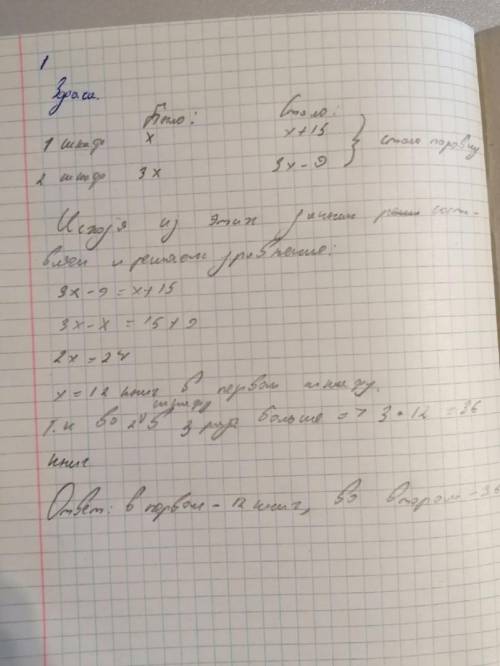 1
Задача.
Было: Стало:
1 шкаф x x+15
2 шкаф 3x 3x-9 } стало поровну
Исходя из этих данных состав-
вляем и решаем уравнение:
3x-9=x+15
3x-x=15+9
2x=24
x=12 книг в первом шкафу.
шкафу
Т.к во 2 в 3 раза больше => 3•12=36
книг
Ответ: в первом - 12 книг, во втором - 36